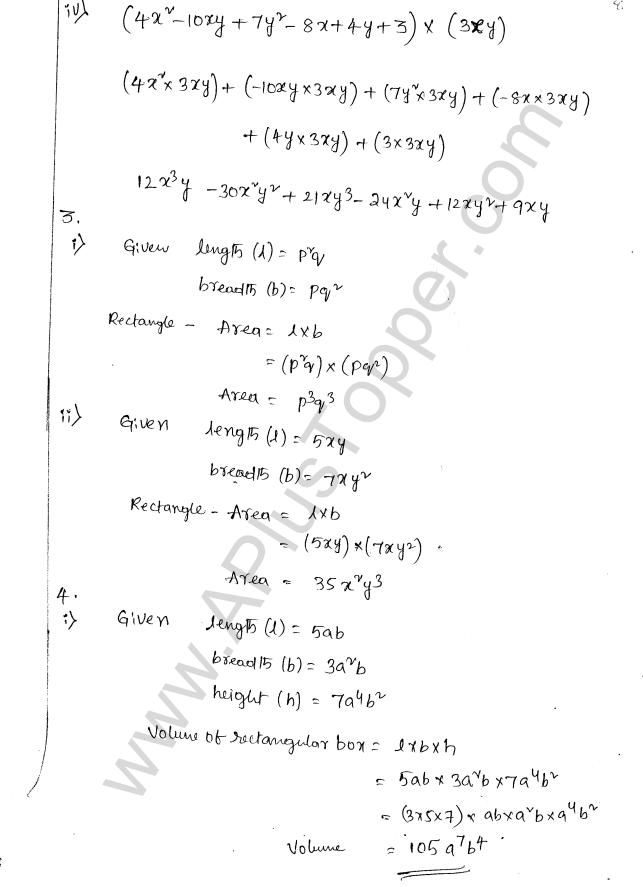 iv) (4x² - 10xy + 7y² - 8x + 4y + 3) × (3xy)
(4x² × 3xy) + (-10xy × 3xy) + (7y² × 3xy) + (-8x × 3xy)
+ (4y × 3xy) + (3 × 3xy)
12x³y - 30x²y² + 21xy³ - 24x²y + 12xy² + 9xy
3.
i) Given length (l) = p²q
breadth (b) = pq²
Rectangle - Area = l×b
= (p²q) × (pq²)
Area = p³q³
ii) Given length (l) = 5xy
breadth (b) = 7xy²
Rectangle - Area = l×b
= (5xy) × (7xy²)
Area = 35x²y³
4.
i) Given length (l) = 5ab
breadth (b) = 3a²b
height (h) = 7a⁴b²
Volume of rectangular box = l×b×h
= 5ab × 3a²b × 7a⁴b²
= (3×5×7) × ab×a²b×a⁴b²
Volume = 105a⁷b⁴
www.APlusTopper.com